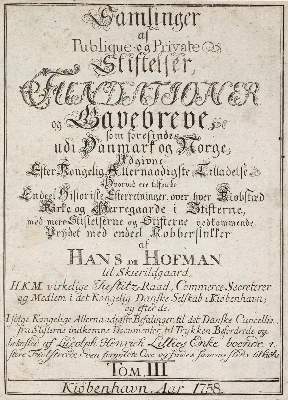 Samlinger
af
Publique-og Private
Stiftelser,
FUNDATIONER
og Gavebreve,
som forefindes
udi Danmark og Norge,
Udgivne
Efter Kongelig Allernaadigste Tilladelse
Hvorved ere tilføiede
Endeel Historiske Efterretninger, over hver Kiøbstæd
Kirke og Herregaarde i Stifterne,
med mere Stiftelserne og Stifterne vedkommende
Prÿdet med endeel Kobberstÿkker
af
HANS DE HOFMAN
til Skierildgaard,
H.K.M. virkelige Justitz-Raad, Commerce-Secreterer
og Medlem i det Kongelig Danske Selskab i Kiøbenhavn;
og efter de
til det Danske Cancellie,
fra Stifterne indkomne Documenter, til Trykken Befordrede og
bekosted af Ludolph Henrich Lillies Enke boende i
store
TOM. III
Kiøbenhavn, Aar 1758.